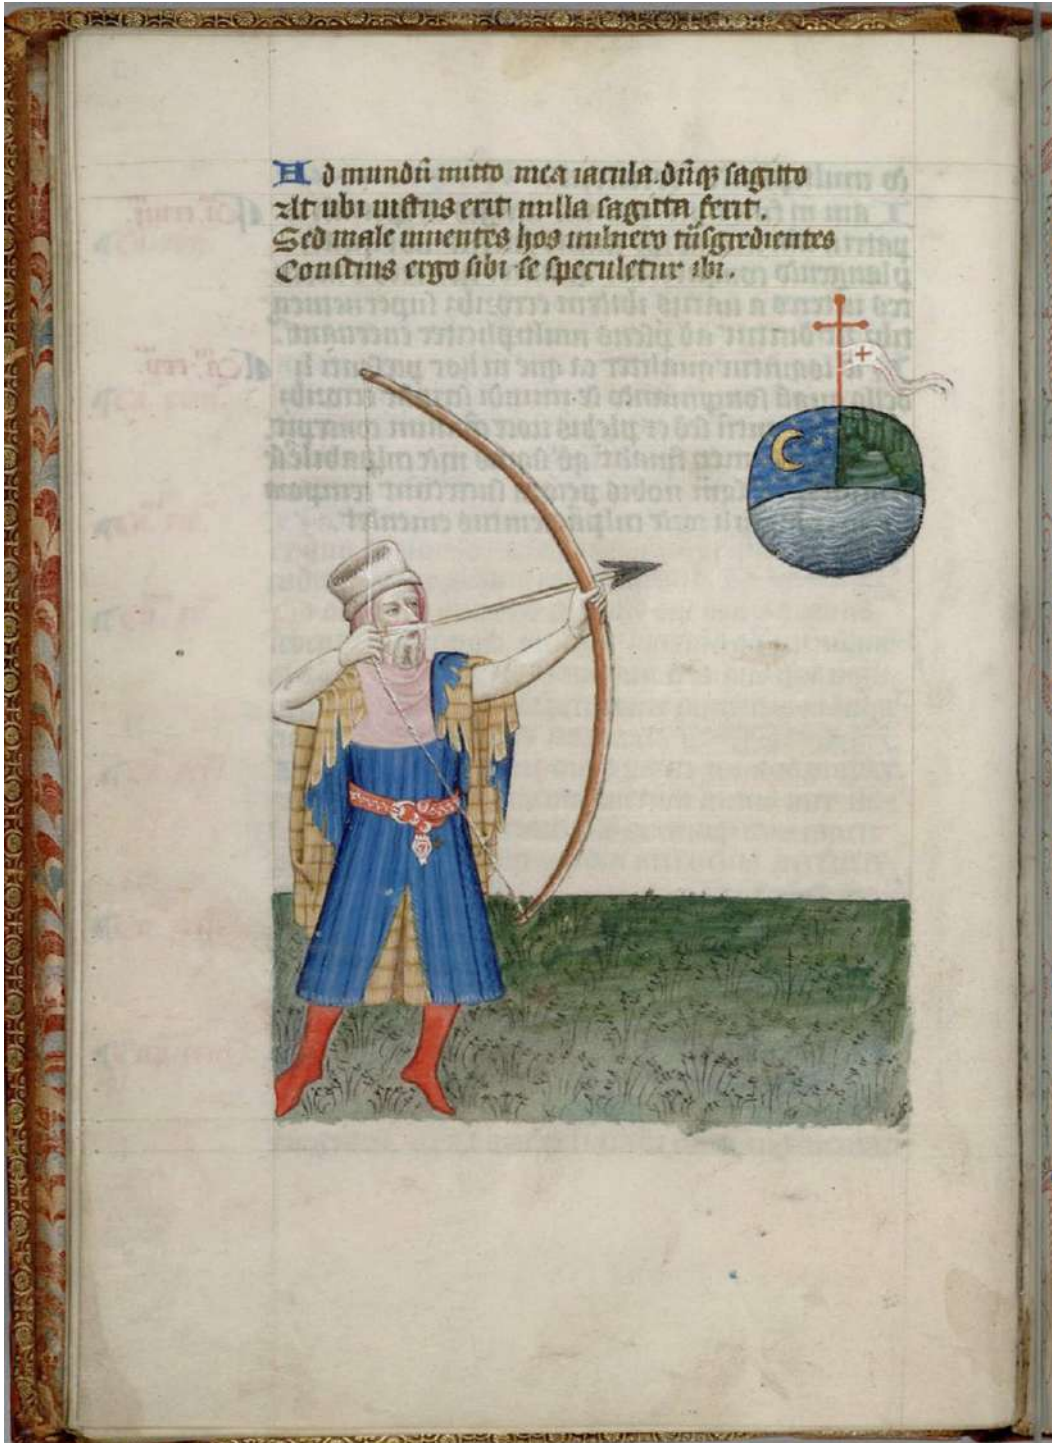 Ad mundū mitto mea iacula. dūqꝫ sagitto
At ubi iustus erit nulla sagitta ferit.
Sed male uiuentes hos uulnero tūsgredientes
Conscius ergo sibi se speculetur ibi.